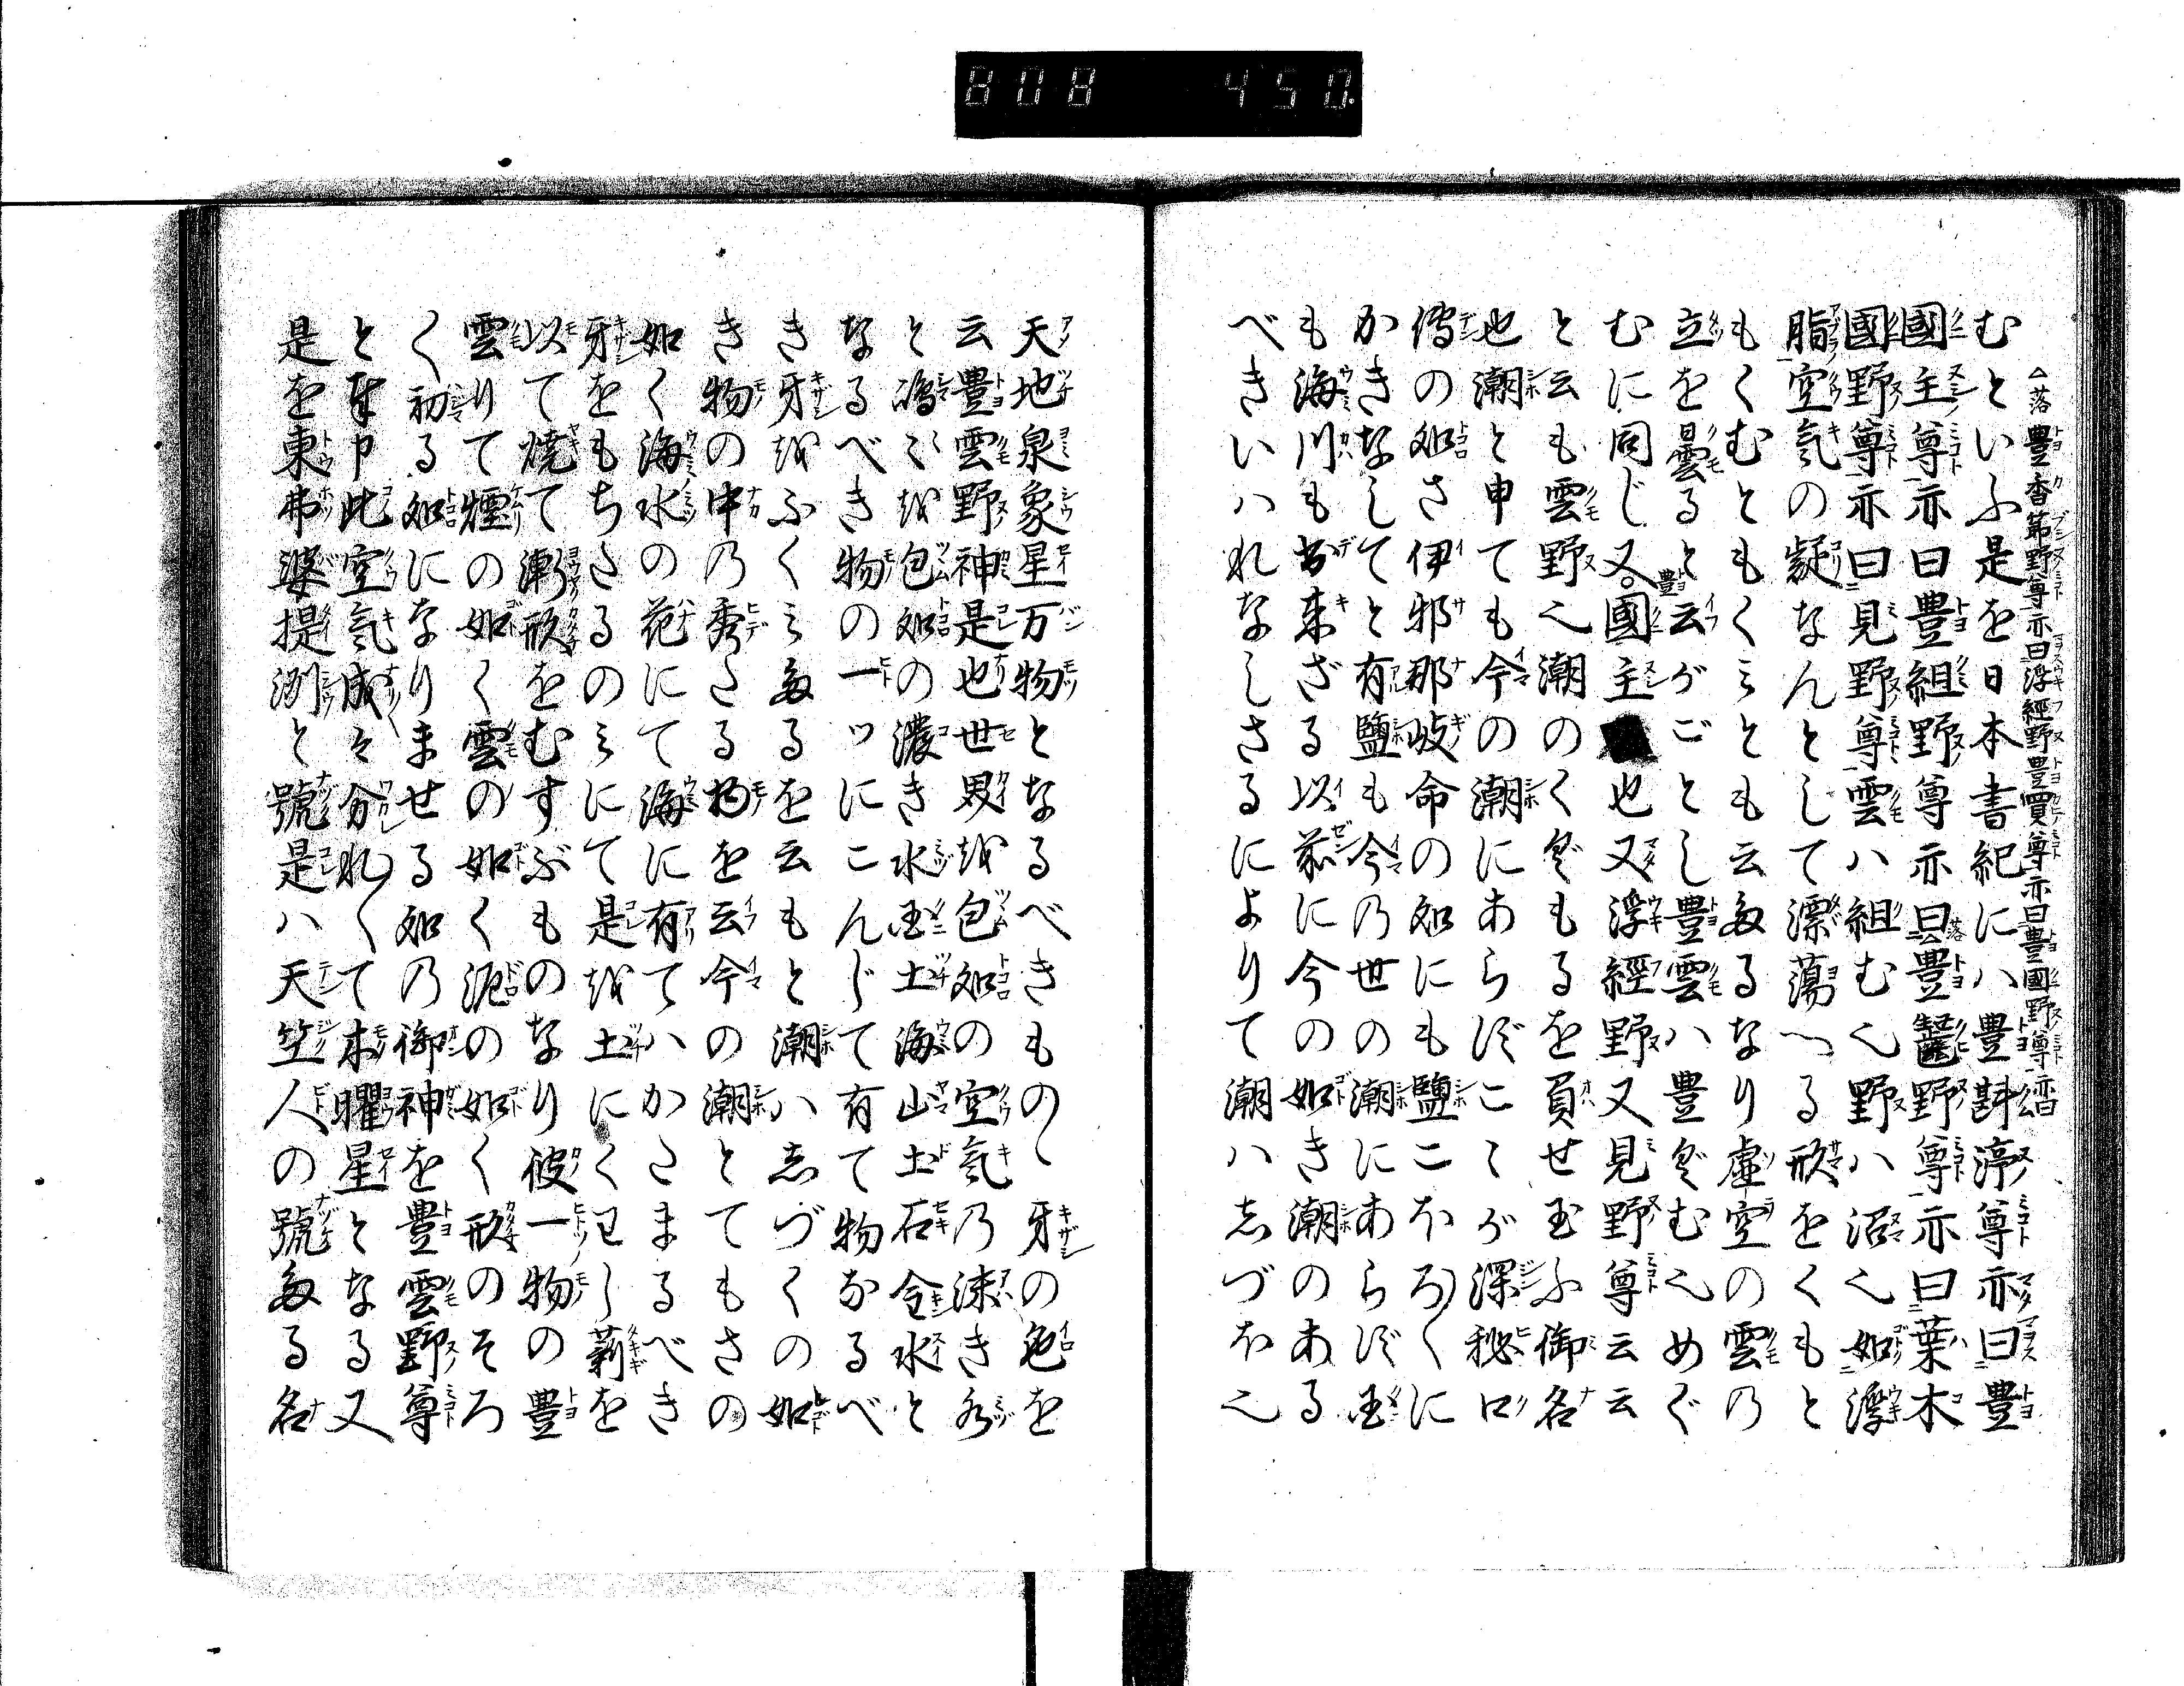 808 450.
△落豊香節野尊亦曰浮經野豊買尊亦曰豊國野尊亦曰
むといふ是を日本書紀にハ豊斟渟尊亦曰豊
國主尊亦曰豊組野尊亦曰豊齧野尊亦曰葉木
國野尊亦曰見野尊雲ハ組む也野ハ沼也如浮
脂空気の凝なんとして漂蕩へる形をくもと
もくむともくミとも云るなり虚空の雲乃
立を曇ると云がごとし豊雲ハ豊ぐむ也めぐ
むに同じ又豊國主也又浮經野又見野尊云云
と云も雲野也潮のくもるを負せ玉ふ御名
也潮と申ても今の潮にあらずこゝが深秘口
傳の処さ伊邪那岐命の処にも鹽こをろ〳〵に
かきなしてと有鹽も今乃世の潮にあらず国
も海川も出来ざる以前に今の如き潮のある
べきいハれなしさるによりて潮ハ志づほ也
天地泉象星万物となるべきものゝ牙の色を
云豊雲野神是也世界越包処の空気乃淡き水
と嶋々越包処の濃き水国土海山土石金水と
なるべき物の一ツにこんじて有て物なるべ
き牙越ふくミたるを云もと潮ハ志づくの如
き物の中乃秀たる物を云今の潮とてもさの
如く海水の花にて海に有てハかたまるべき
牙をもちたるのミにて是越土にくわし薪を
以て焼て漸形をむすぶものなり彼一物の豊
雲りて煙の如く雲の如く泥の如く形のそろ
く初る処になりませる処乃御神を豊雲野尊
と申此空気成々分れ〳〵て木曜星となる又
是を東弗婆提洲と號是ハ天竺人の號たる名